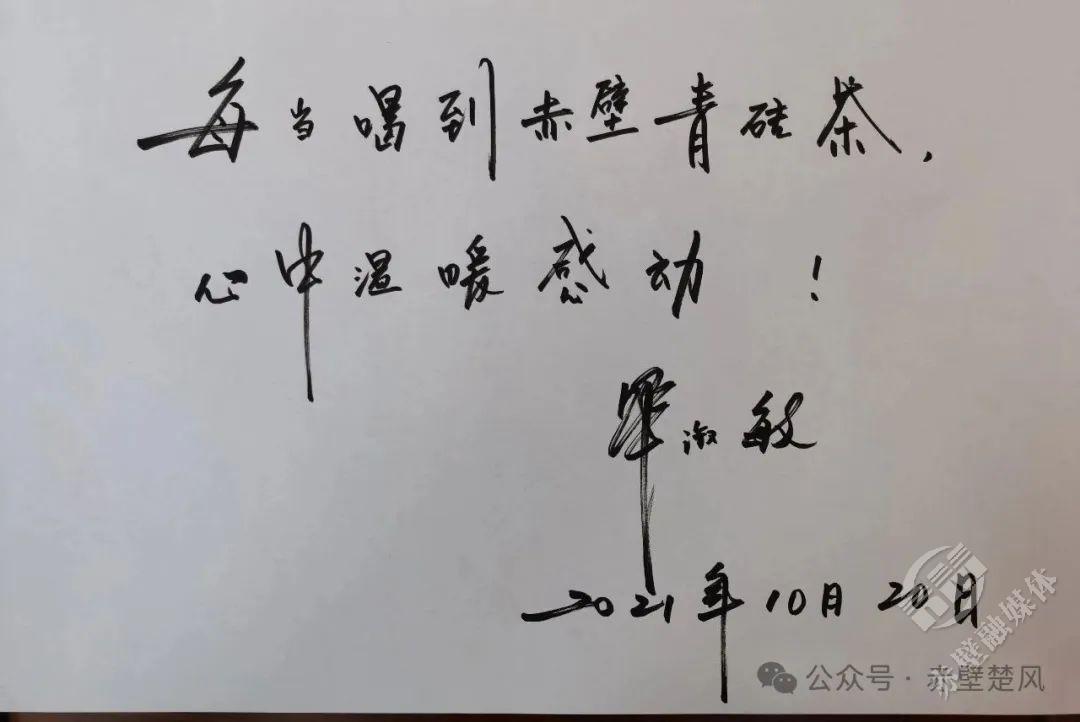 每当喝到赤壁青砖茶，
心中温暖感动！
畢淑敏
2021年10月20日
赤壁融媒体
公众号·赤壁楚风